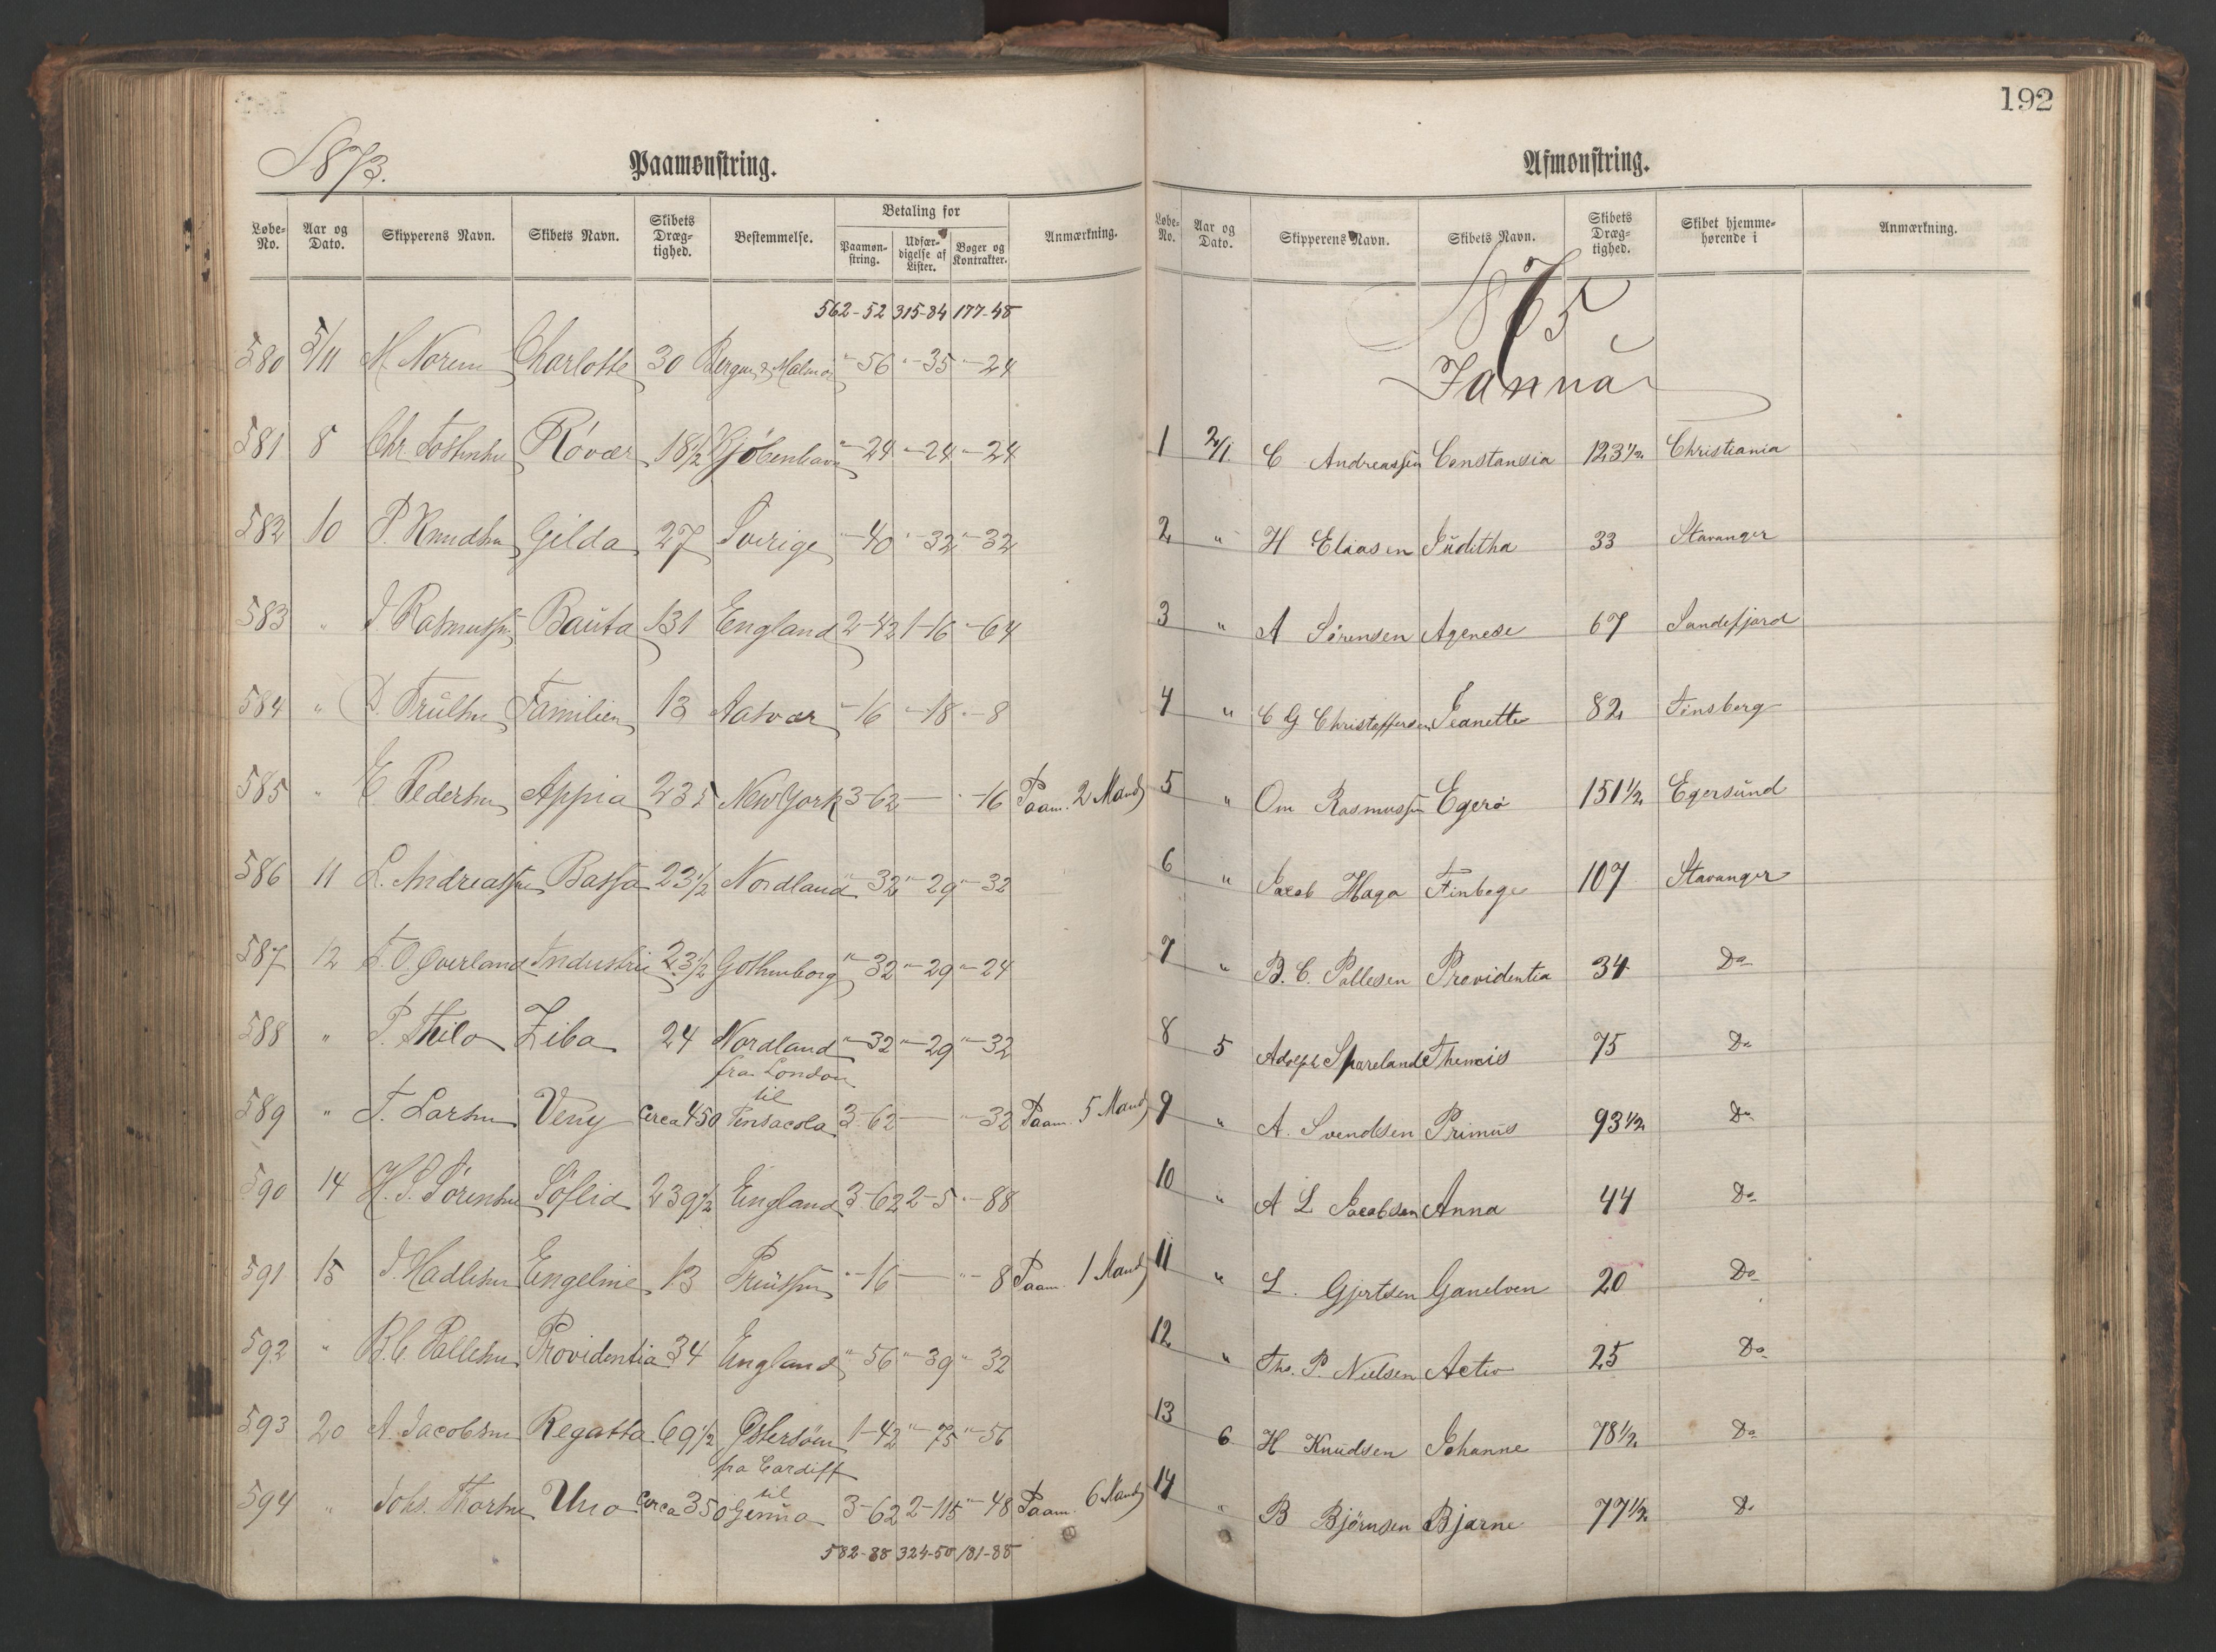 1873.
Paamønstring.
Løbe-No. Aar og Dato. Skipperens Navn. Skibets Navn. Skibets Dræg-tighed. Bestemmelse. Betaling for Paamøn-string. Udfær-digelse af Lister. Bøger og Kontrakter. Anmærkning.
562-52 315-84 177-48
580 5/11 M. Norem Charlotte 30 Bergen & Malmø "-56 "-35 "-24
581 8 Chr. Tostensen Røvær 18 1/2 Kjöbenhavn "-24 "-24 "-24
582 10 P. Knudsen Gilda 27 Sverige "-40 "-32 "-32
583 " J Rasmussen Bauta 131 England 2-42 1-16 "-64
584 " D. Trulsen Familien 13 Aasvær "-16 "-18 "-8
585 " E Pedersen Appia 235 New York 3-62 — "-16 Paam. 2 Mand
586 11 L. Andreassen Bassa 23 1/2 Nordland "-32 "-29 "-32
587 12 T. O. Qverland Industrie 23 1/2 Gothenborg "-32 "-29 "-24
588 " P. Thilo Ziba 24 Nordland "-32 "-29 "-32
fra London
til
589 " T. Larsen Veny circa 450 Pensacola 3-62 — "-32 Paam. 5 Mand
590 14 H. S. Sörensen Söflid 239 1/2 England 3-62 2-5 "-88
591 15 J. Hadlesen Engeline 13 Preussen "-16 — "-8 Paam. 1 Mand
592 " B. C. Pallesen Providentia 34 England "-56 "-39 "-32
593 20 A. Jacobsen Regatta 69 1/2 Østersöen 1-42 "-75 "-56
fra Cardiff
til
594 " Johs. Thorsen Uno circa 350 Genua 3-62 2-115 "-48 Paam. 6 Mand
582-88 324-50 181-88
192
Afmønstring.
Løbe-No. Aar og Dato. Skipperens Navn. Skibets Navn. Skibets Dræg-tighed. Skibet hjemme-hørende i Anmærkning.
1875
Januar
1 2/1 C Andreassen Constansia 123 1/2 Christiania
2 " H Eliasen Juditha 33 Stavanger
3 " A Sörensen Agenese 67 Sandefjord
4 " C G Christoffersen Jeanette 82 Tinsberg
5 " Om Rasmussen Egerö 151 1/2 Egersund
6 " Jacob Haga Finbege 107 Stavanger
7 " B. C. Pallesen Providentia 34 Do
8 5 Adolph Skareland Themis 75 Do
9 " A. Svendsen Primus 93 1/2 Do
10 " A L Jacobsen Anna 44 Do
11 " L. Gjertsen Ganelven 20 Do
12 " Ths. P. Nielsen Activ 25 Do
13 6 H Knudsen Johanne 78 1/2 Do
14 " B Björnsen Bjarne 77 1/2 Do